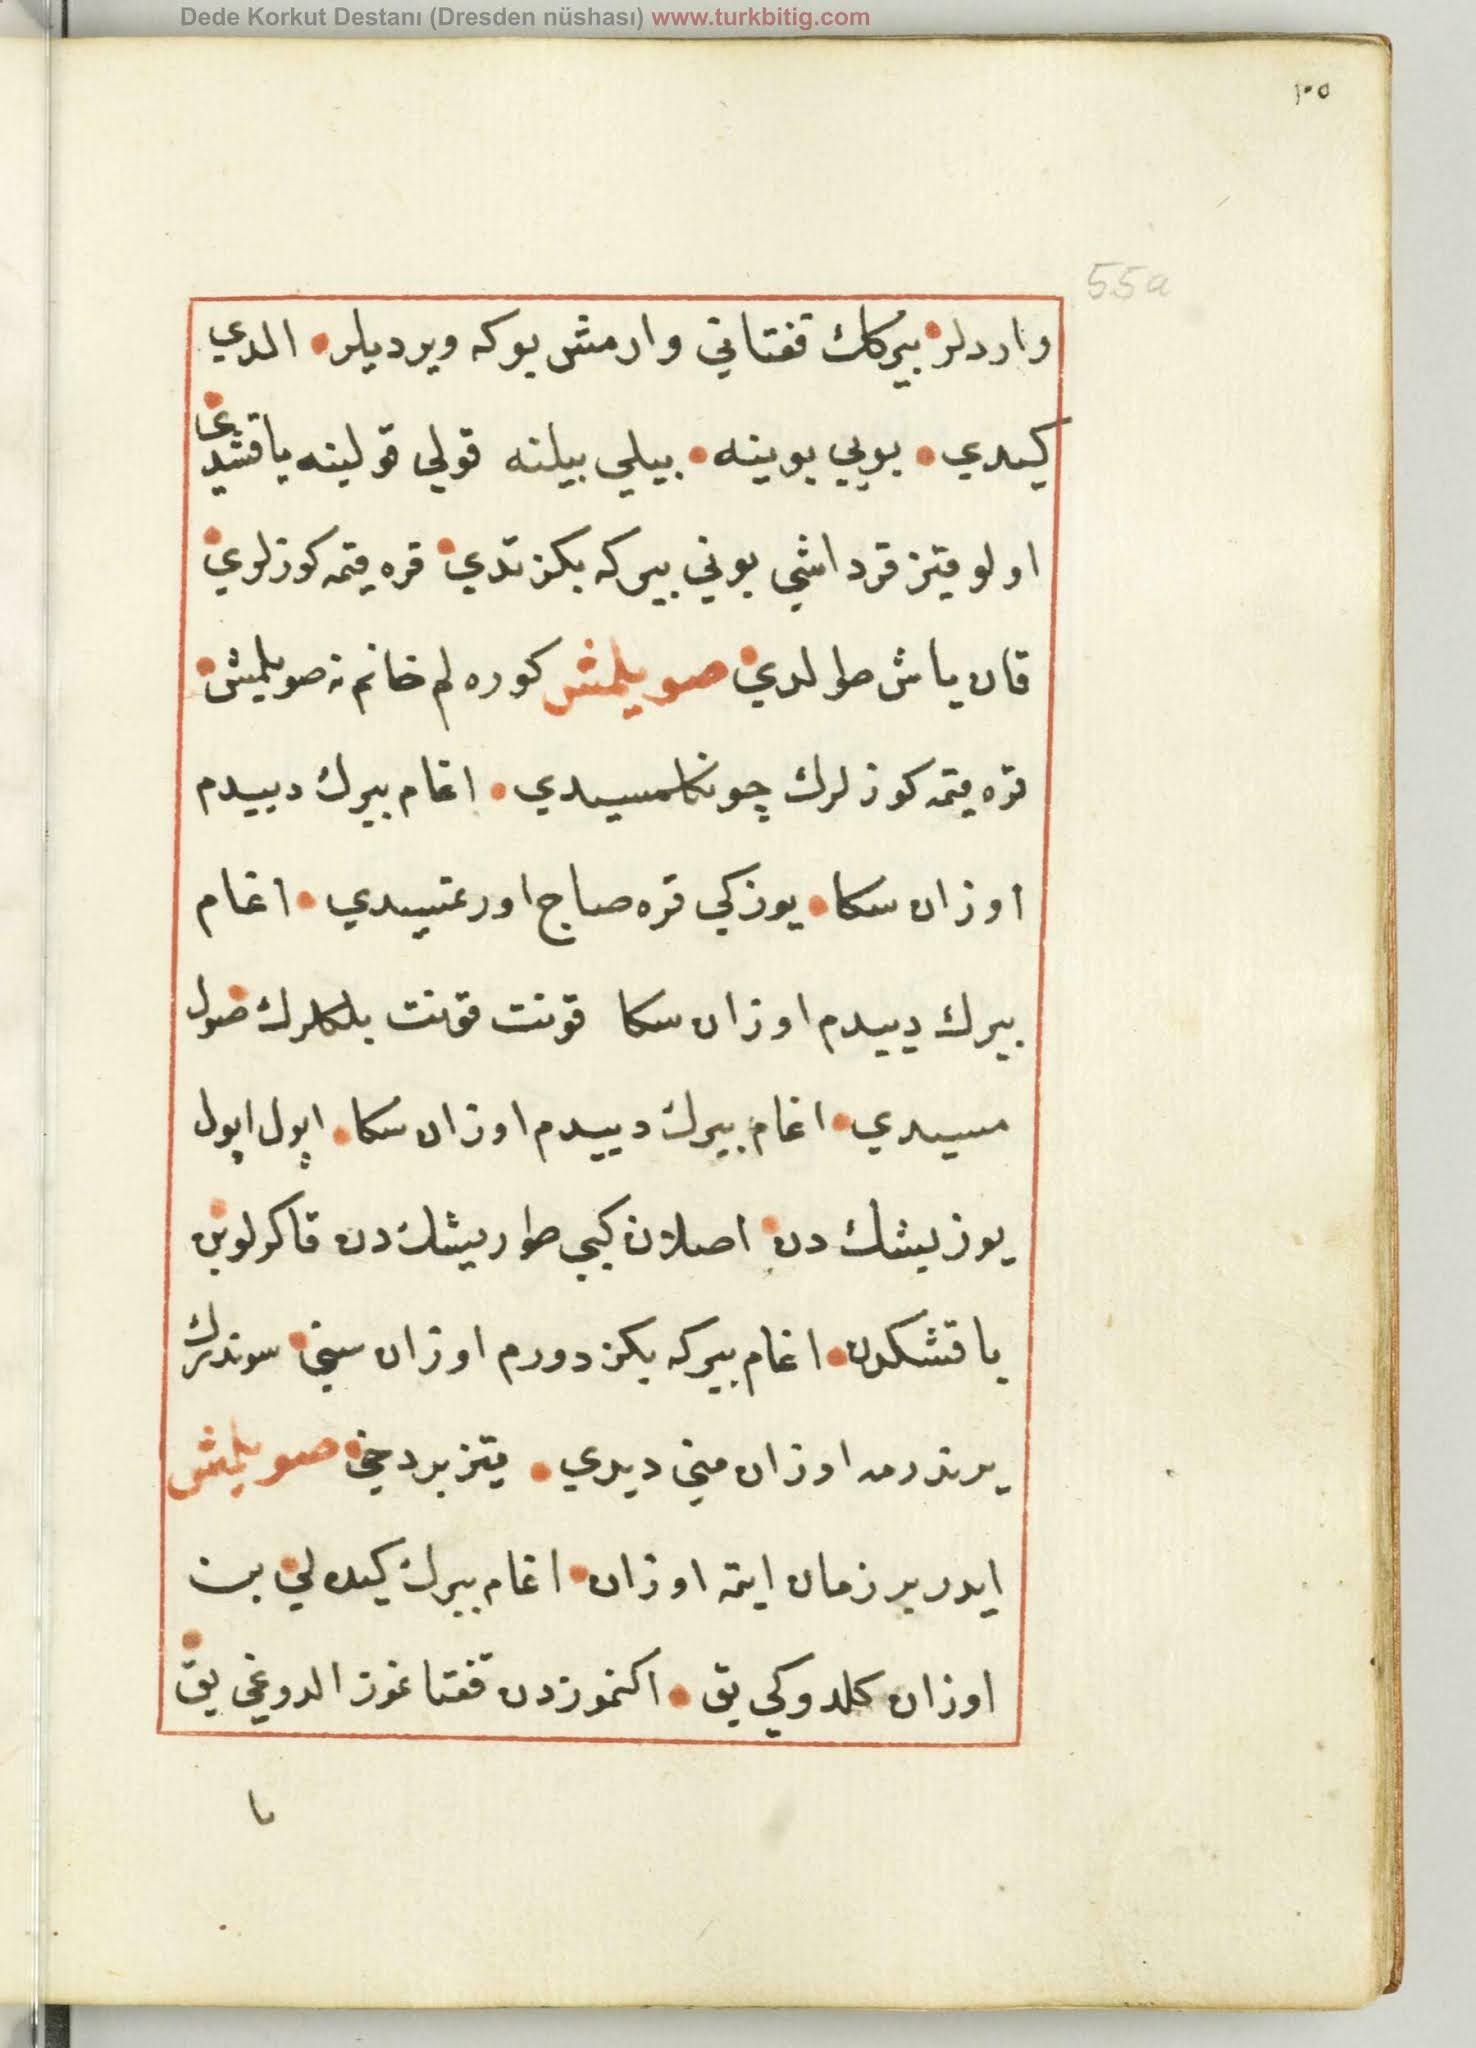 Dede Korkut Destanı (Dresden nüshası) www.turkbitig.com
١٠٥
55a
واردلر بيركك قفتاني وارمش بوكه ويرديلر الدي
كيدي بويي بوينه بيلي بيلنه قولي قولينه ياقشدي
اولو قيز قرداشي بوني بيركه بكزتدي قره قيمه كوزلري
قان ياش طولدي صويلمش كوره لم خانم نه صويلمش
قره قيمه كوزلرك چونكلمسيدي اغام بيرك دييدم
اوزان سكا يوزكي قره صاج اورتمسيدي اغام
بيرك دييدم اوزان سكا قونت قونت بلكلرك صول
مسيدي اغام بيرك دييدم اوزان سكا اپول اپول
يوزيشك دن اصلان كبي طوريشك دن قاكولوبن
باقشكدن اغام بيركه بكزدورم اوزان سني سوندرك
يرندرمه اوزان مني ديدي قيز بردخي صويلمش
ايدر بر زمان ايتمه اوزان اغام بيرك كيده لي بينه
اوزان كلدوكي يق اكنموزدن قفتانموز الدوغي يق
با